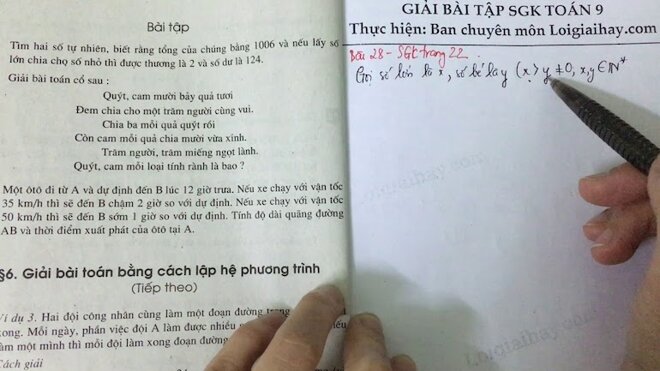 Bài tập
Tìm hai số tự nhiên, biết rằng tổng của chúng bằng 1006 và nếu lấy số
lớn chia cho số nhỏ thì được thương là 2 và số dư là 124.
Giải bài toán cổ sau :
Quýt, cam mười bảy quả tươi
Đem chia cho một trăm người cùng vui.
Chia ba mỗi quả quýt rồi
Còn cam mỗi quả chia mười vừa xinh.
Trăm người, trăm miếng ngọt lành.
Quýt, cam mỗi loại tính rành là bao ?
Một ôtô đi từ A và dự định đến B lúc 12 giờ trưa. Nếu xe chạy với vận tốc
35 km/h thì sẽ đến B chậm 2 giờ so với dự định. Nếu xe chạy với vận tốc
50 km/h thì sẽ đến B sớm 1 giờ so với dự định. Tính độ dài quãng đường
AB và thời điểm xuất phát của ôtô tại A.
§6. Giải bài toán bằng cách lập hệ phương trình
(Tiếp theo)
Ví dụ 3. Hai đội công nhân cùng làm một đoạn đường trong
xong. Mỗi ngày, phần việc đội A làm được nhiều
làm một mình thì mỗi đội làm xong đoạn đường
Cách giải
GIẢI BÀI TẬP SGK TOÁN 9
Thực hiện: Ban chuyên môn Loigiaihay.com
Bài 28 - SGK trang 22
Gọi số lớn là x, số bé là y (x > y ≠ 0, x, y ∈ N*
Loigiaihay.com
Loigiaihay.com